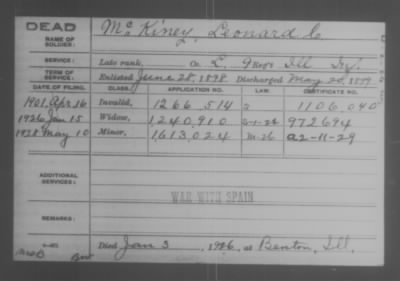 DEAD
NAME OF SOLDIER: McKiney, Leonard C.
SERVICE: Late rank, Co. L, 9 Reg't Ill. Inf.
TERM OF SERVICE: Enlisted June 28, 1898 Discharged May 20, 1899
DATE OF FILING. CLASS. APPLICATION NO. LAW. CERTIFICATE NO.
1901 Apr 16 Invalid, 1266.514 1106.040
1926 Jan 15 Widow, 1240910 972694
1928 May 10 Minor, 1613024 M-26 a2-11-29
ADDITIONAL SERVICES:
WAR WITH SPAIN
REMARKS:
Died Jan 3, 1926, at Benton, Ill.